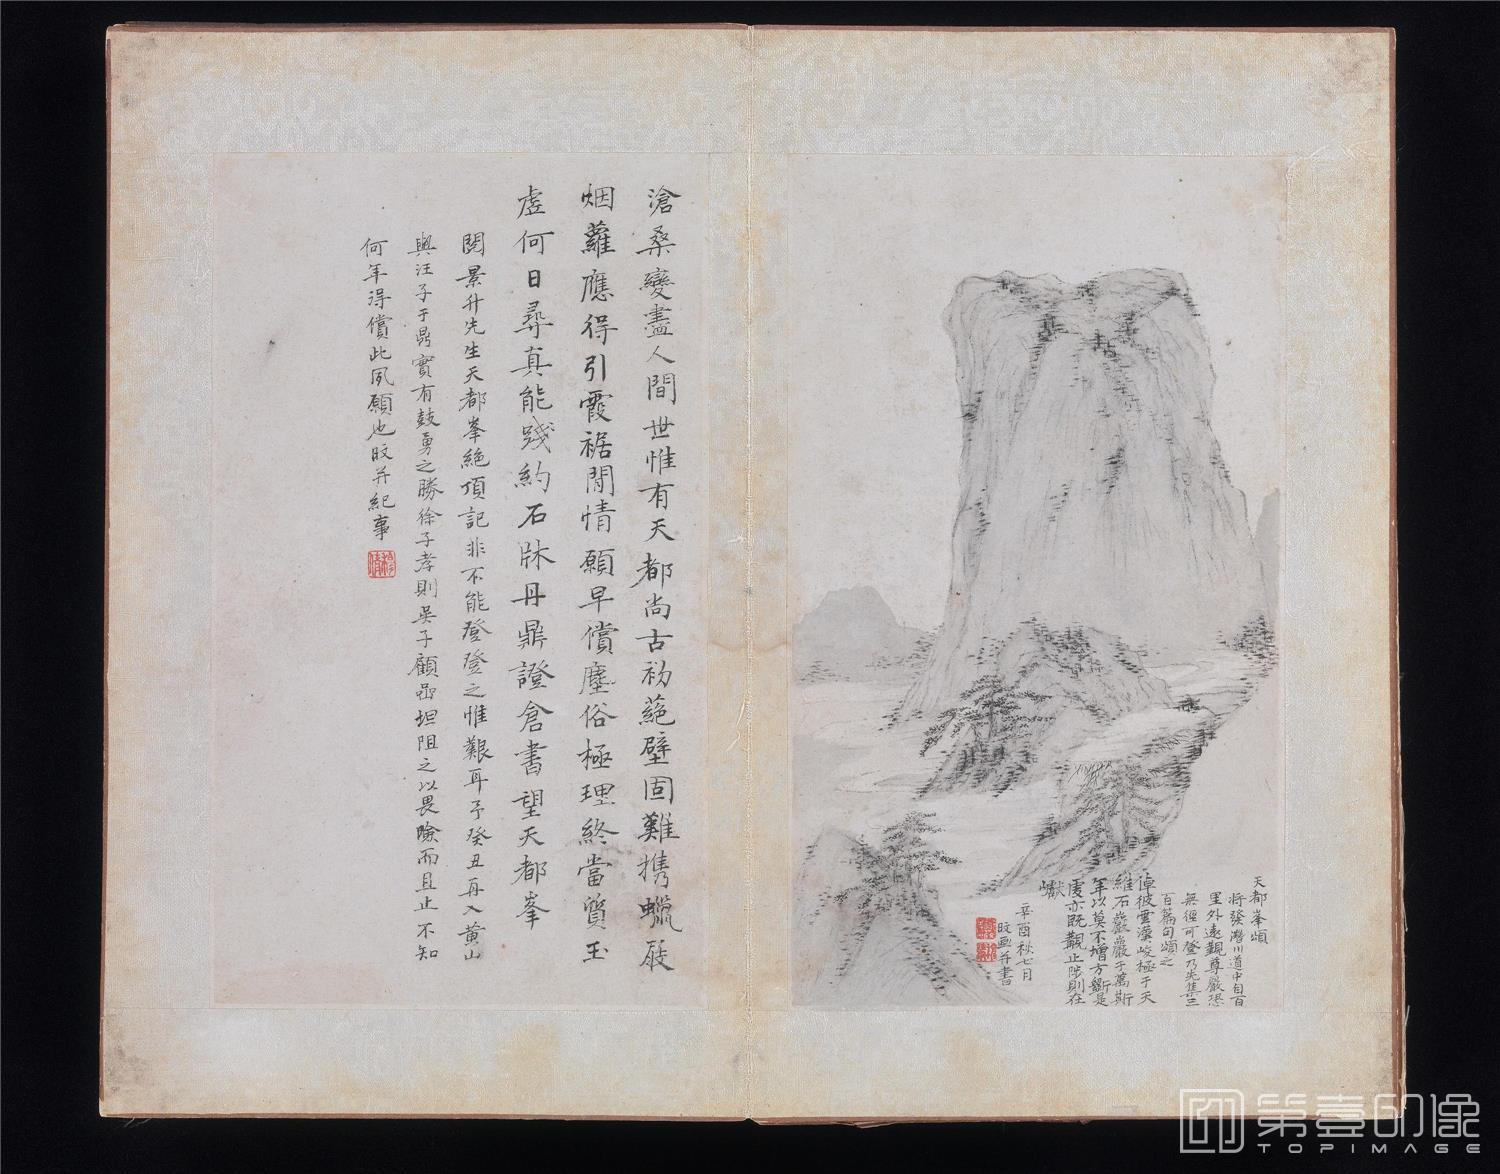 天都峯頌
將發潛川道中自百
里外遠觀尊嚴恐
無徑可登乃先集三
百篇句頌之
倬彼雲漢峻極于天
維石巖巖于萬斯
年以莫不增方斵是
虔亦既觀止陟則在
巘
辛酉秋七月
旼画并書
滄桑變盡人間世惟有天都尚古初蕝壁固難攜蠟屐
烟蘿應得引霞裾閒情願早償塵俗極理終當質玉
虛何日尋真能踐約石牀丹鼎證倉書望天都峯
閱景升先生天都峯絕頂記非不能登登之惟艱耳予癸丑再入黄山
與汪子于鼎實有鼓勇之勝徐子孝則吳子顧嵒坦阻之以畏險而且止不知
何年得償此夙願也旼并紀事
第壹印像
TOPIMAGE